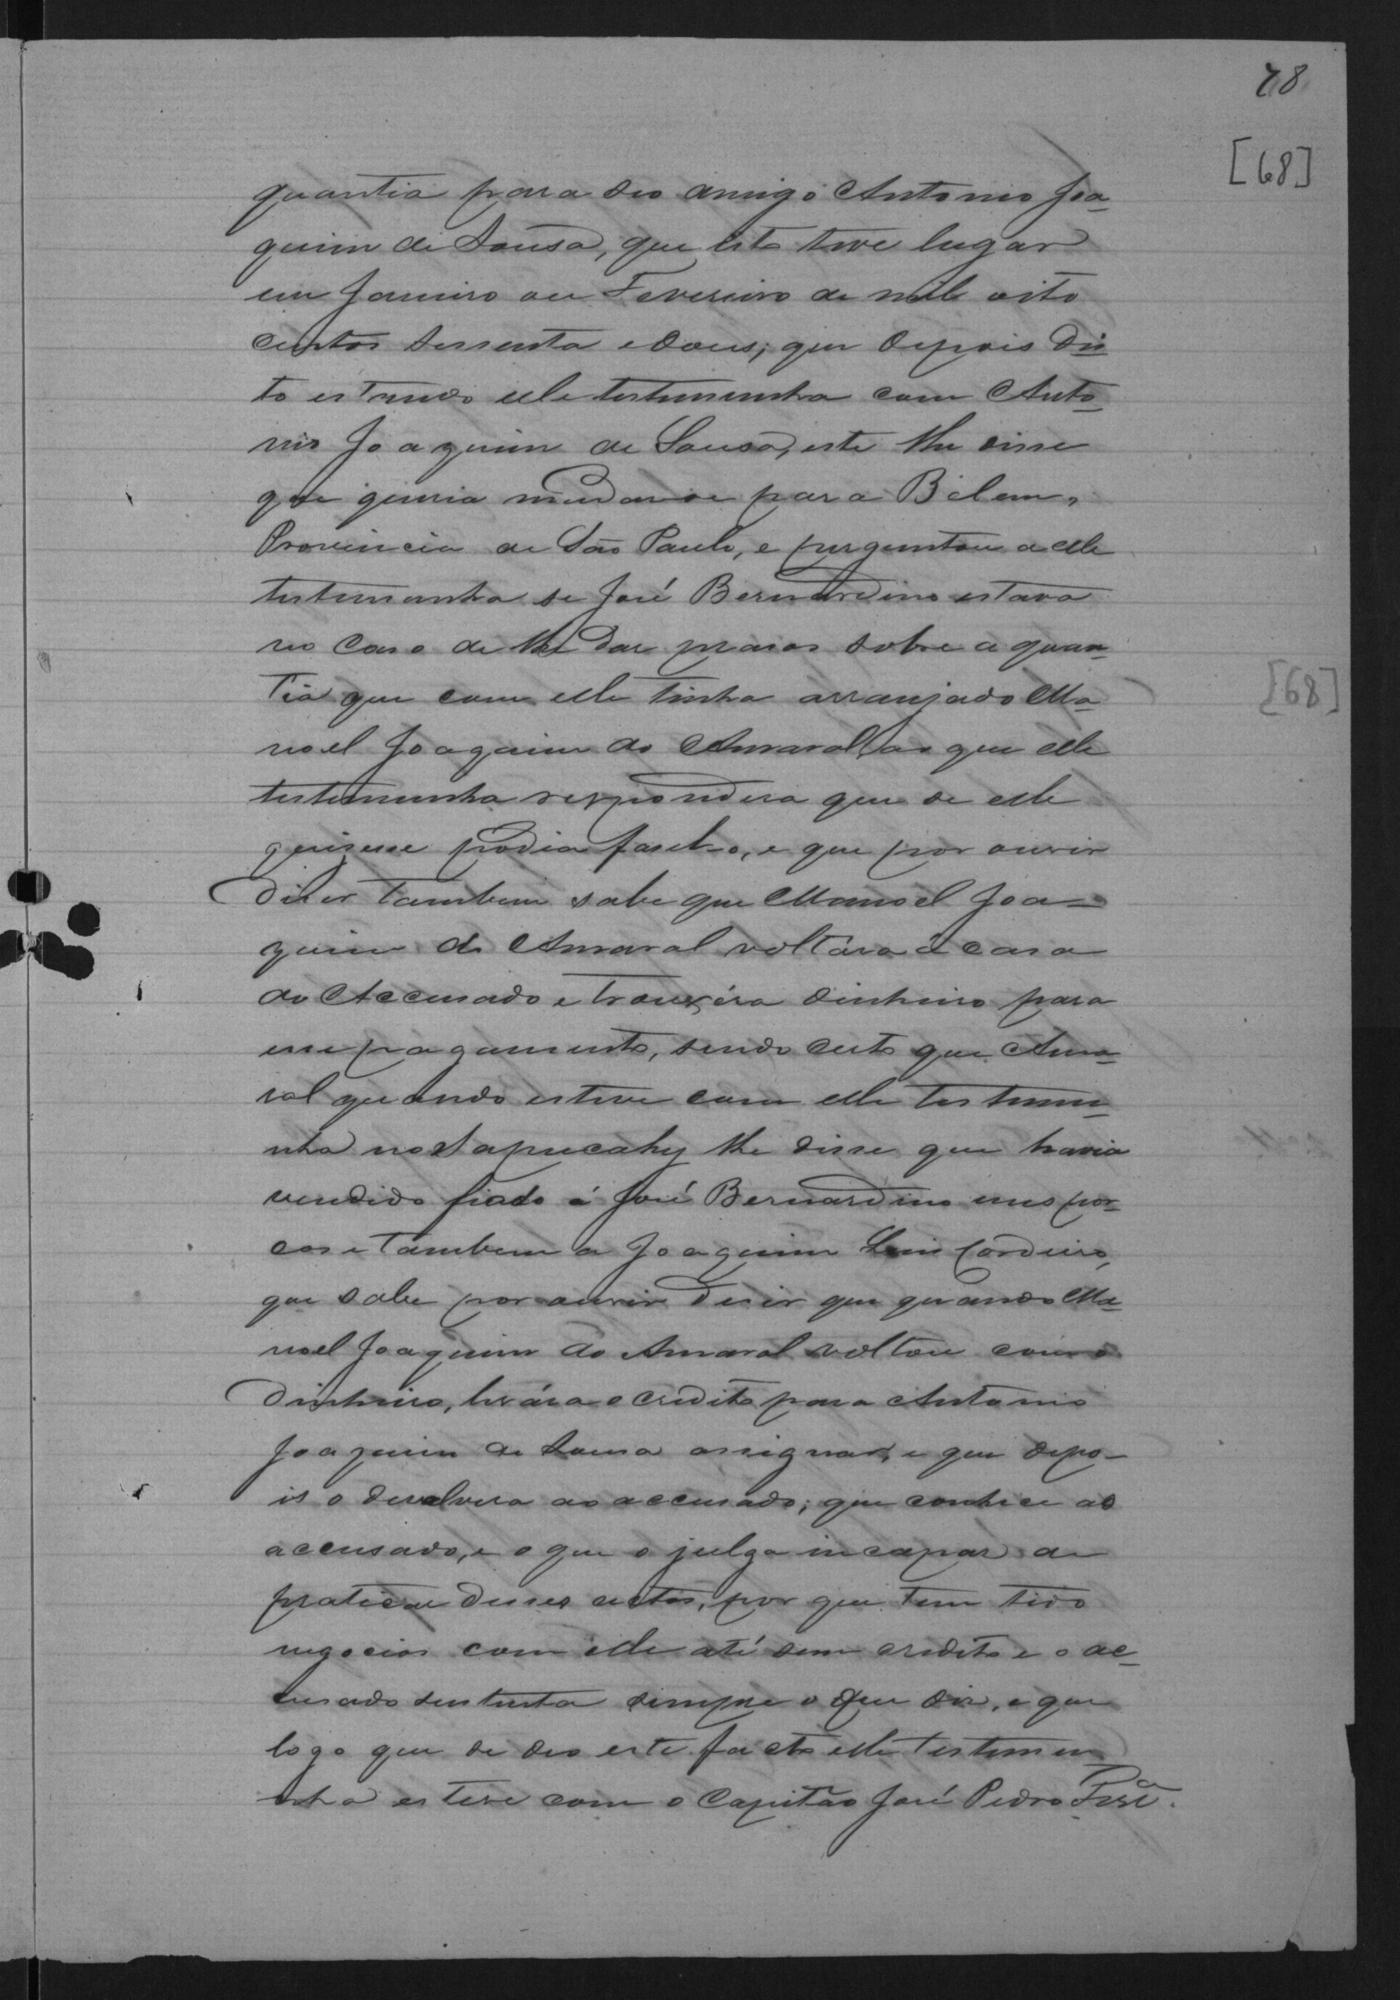 78
[68]
quantia para seo amigo Antonio Joa-
quim de Sousa, que isto teve lugar
em Janeiro ou Fevereiro de mil oito
centos sessenta e dous; que depois dis-
to estando elle testemunha com Anto-
nio Joaquim de Sousa, este lhe disse
que queria mudarse para Belem,
Provincia de São Paulo, e perguntou a elle
testemunha se José Bernardino estava
no caso de lhe dar prasos sobre a quan-
tia que com elle tinha arranjado Ma-
noel Joaquim do Amaral, ao que elle
testemunha respondera que se elle
quizesse podia faselo, e que por ouvir
diser tambem sabe que Manoel Joa-
quim do Amaral voltára á casa
do Accusado e trouxéra dinheiro para
esse pagamento, sendo certo que Ama-
ral quando esteve com elle testemu-
nha no Sapucahy lhe disse que havia
vendido fiado á José Bernardino uns por-
cos e tambem a Joaquim Luis Cordeiro,
que sabe por ouvir diser que quando Ma-
noel Joaquim do Amaral voltou com o
dinheiro, levára o credito para Antonio
Joaquim de Sousa assignar, e que depo-
is o devolvera ao accusado; que conhece ao
accusado, e o que o julga incapas de
praticar desses actos, por que tem tido
negocios com elle até sem credito e o ac-
cusado sustenta sempre o que diz, e que
logo que se deo este facto elle testemu-
nha esteve com o Capitão José Pedro
[68]